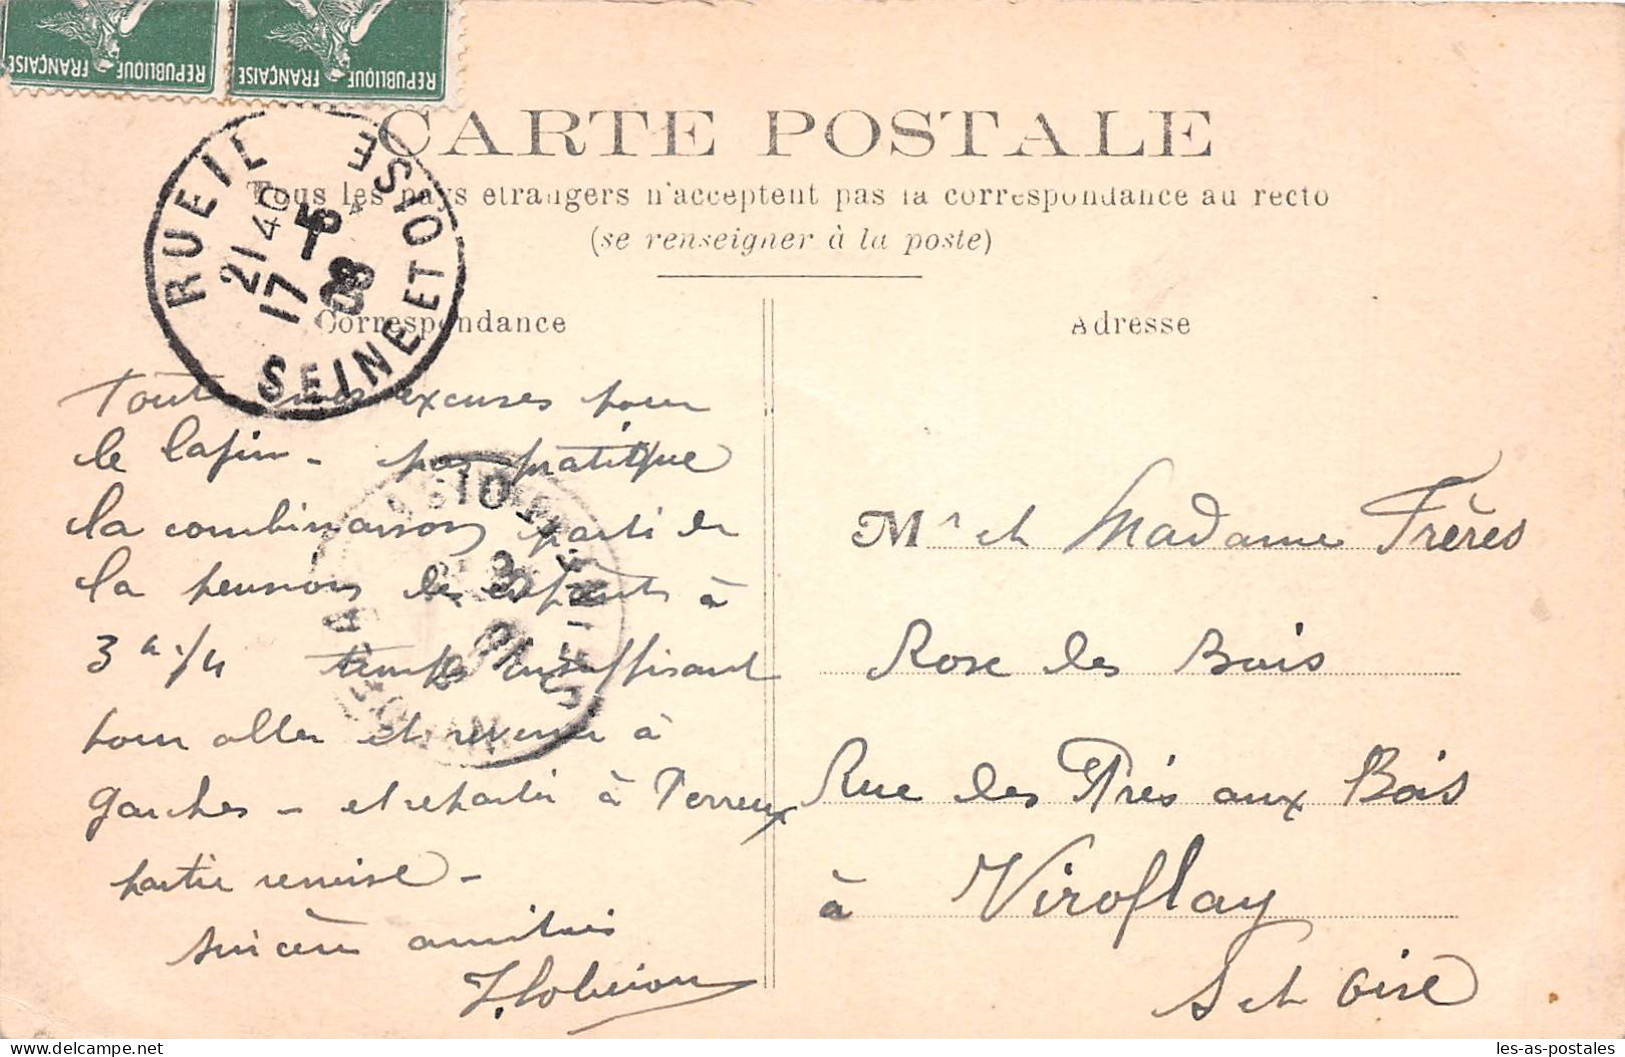 REPUBLIQUE FRANÇAISE
REPUBLIQUE FRANÇAISE
CARTE POSTALE
Tous les pays etrangers n'acceptent pas la correspondance au recto
(se renseigner à la poste)
RUEIL
SEINE ET OISE
21 40
17
Correspondance
Adresse
Toutes mes excuses pour
le lapin - pas pratique
la combinaison parti de
la pension les enfants à
3 h 1/4 temps insuffisant
pour aller et revenir à
garches - et repartir à Perreux
partie remise -
sincères amitiés
Mr et Madame Frères
Rose des Bois
Rue des Prés aux Bois
à Viroflay
S et Oise
les-as-postales